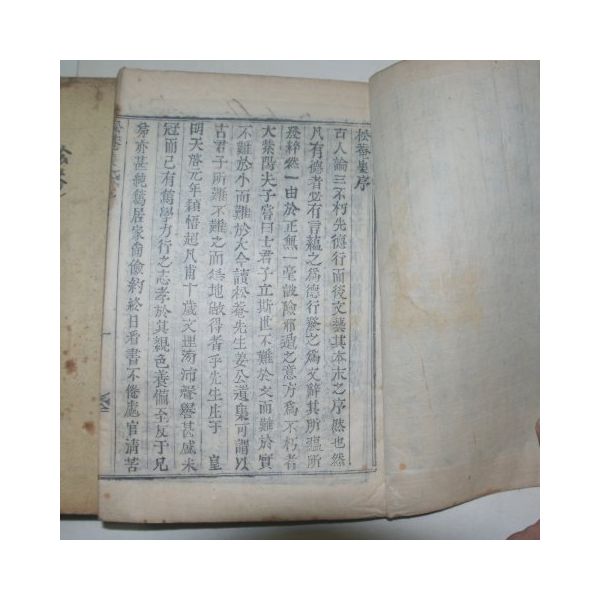 松菴集序
古人論三不朽先德行而後文藝其本末之序然也然
凡有德者必有言蘊之為德行發之為文辭其所蘊所
發粹然一由於正無一毫詖險邪遁之意方為不朽者
大紫陽夫子嘗曰士君子立斯世不難於文而難於實
不難於小而難於大今讀松菴先生姜公遺集可謂以
古君子所難不難之而得地做得者乎先生生于 皇
明天啓元年穎悟超凡甫十歲文理汤沛聲譽甚盛未
冠而已有篤學力行之志孝於其親色養備至友于兄
弟亦甚純篤居家尚儉約終日看書不倦處官清苦